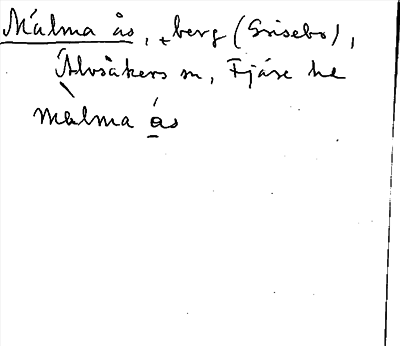 Målma ås, tberg (Grisebo),
Älvsåkers sn, Fjäre hd
målma ás